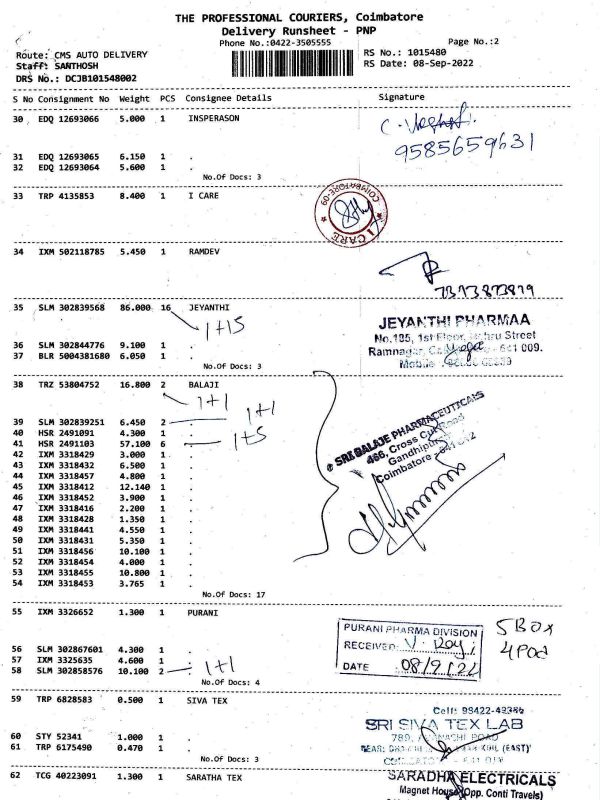 THE PROFESSIONAL COURIERS, Coimbatore
Delivery Runsheet - PNP
Phone No.:0422-3505555
Page No.:2
Route: CMS AUTO DELIVERY
RS No.: 1015480
Staff: SANTHOSH
RS Date: 08-Sep-2022
DRS No.: DCJB101548002
S No Consignment No Weight PCS Consignee Details Signature
30 EDQ 12693066 5.000 1 INSPERASON
9585659631
31 EDQ 12693065 6.150 1 .
32 EDQ 12693064 5.600 1 .
No.Of Docs: 3
33 TRP 4135853 8.400 1 I CARE
COIMBATORE-09
I CARE
34 IXM 502118785 5.450 1 RAMDEV
7373873879
35 SLM 302839568 86.000 16 JEYANTHI
1+15
JEYANTHI PHARMAA
No.185, 1st Floor, Nehru Street
Ramnagar, 641 009.
Mobile
36 SLM 302844776 9.100 1 .
37 BLR 5004381680 6.050 1 .
No.Of Docs: 3
38 TRZ 53804752 16.800 2 BALAJI
1+1
39 SLM 302839251 6.450 2 .
1+1
40 HSR 2491091 4.300 1 .
41 HSR 2491103 57.100 6 .
1+5
SRI BALAJE PHARMACEUTICALS
466, Cross Cut Road
Gandhipuram
Coimbatore - 641 012
42 IXM 3318429 3.000 1 .
43 IXM 3318432 6.500 1 .
44 IXM 3318457 4.800 1 .
45 IXM 3318412 12.140 1 .
46 IXM 3318452 3.900 1 .
47 IXM 3318416 2.200 1 .
48 IXM 3318428 1.350 1 .
49 IXM 3318441 4.550 1 .
50 IXM 3318431 5.350 1 .
51 IXM 3318456 10.100 1 .
52 IXM 3318454 4.000 1 .
53 IXM 3318455 10.800 1 .
54 IXM 3318453 3.765 1 .
No.Of Docs: 17
55 IXM 3326652 1.300 1 PURANI
PURANI PHARMA DIVISION
RECEIVED:
DATE 08/9/22
5 BOX
4 POD
56 SLM 302867601 4.300 1 .
57 IXM 3325635 4.600 1 .
58 SLM 302858576 10.100 2 .
1+1
No.Of Docs: 4
59 TRP 6828583 0.500 1 SIVA TEX
Cell: 98422-42386
SRI SIVA TEX LAB
789, ROAD
60 STY 52341 1.000 1 .
61 TRP 6175490 0.470 1 .
No.Of Docs: 3
62 TCG 40223091 1.300 1 SARATHA TEX
SARADHA ELECTRICALS
Magnet House(Opp. Conti Travels)